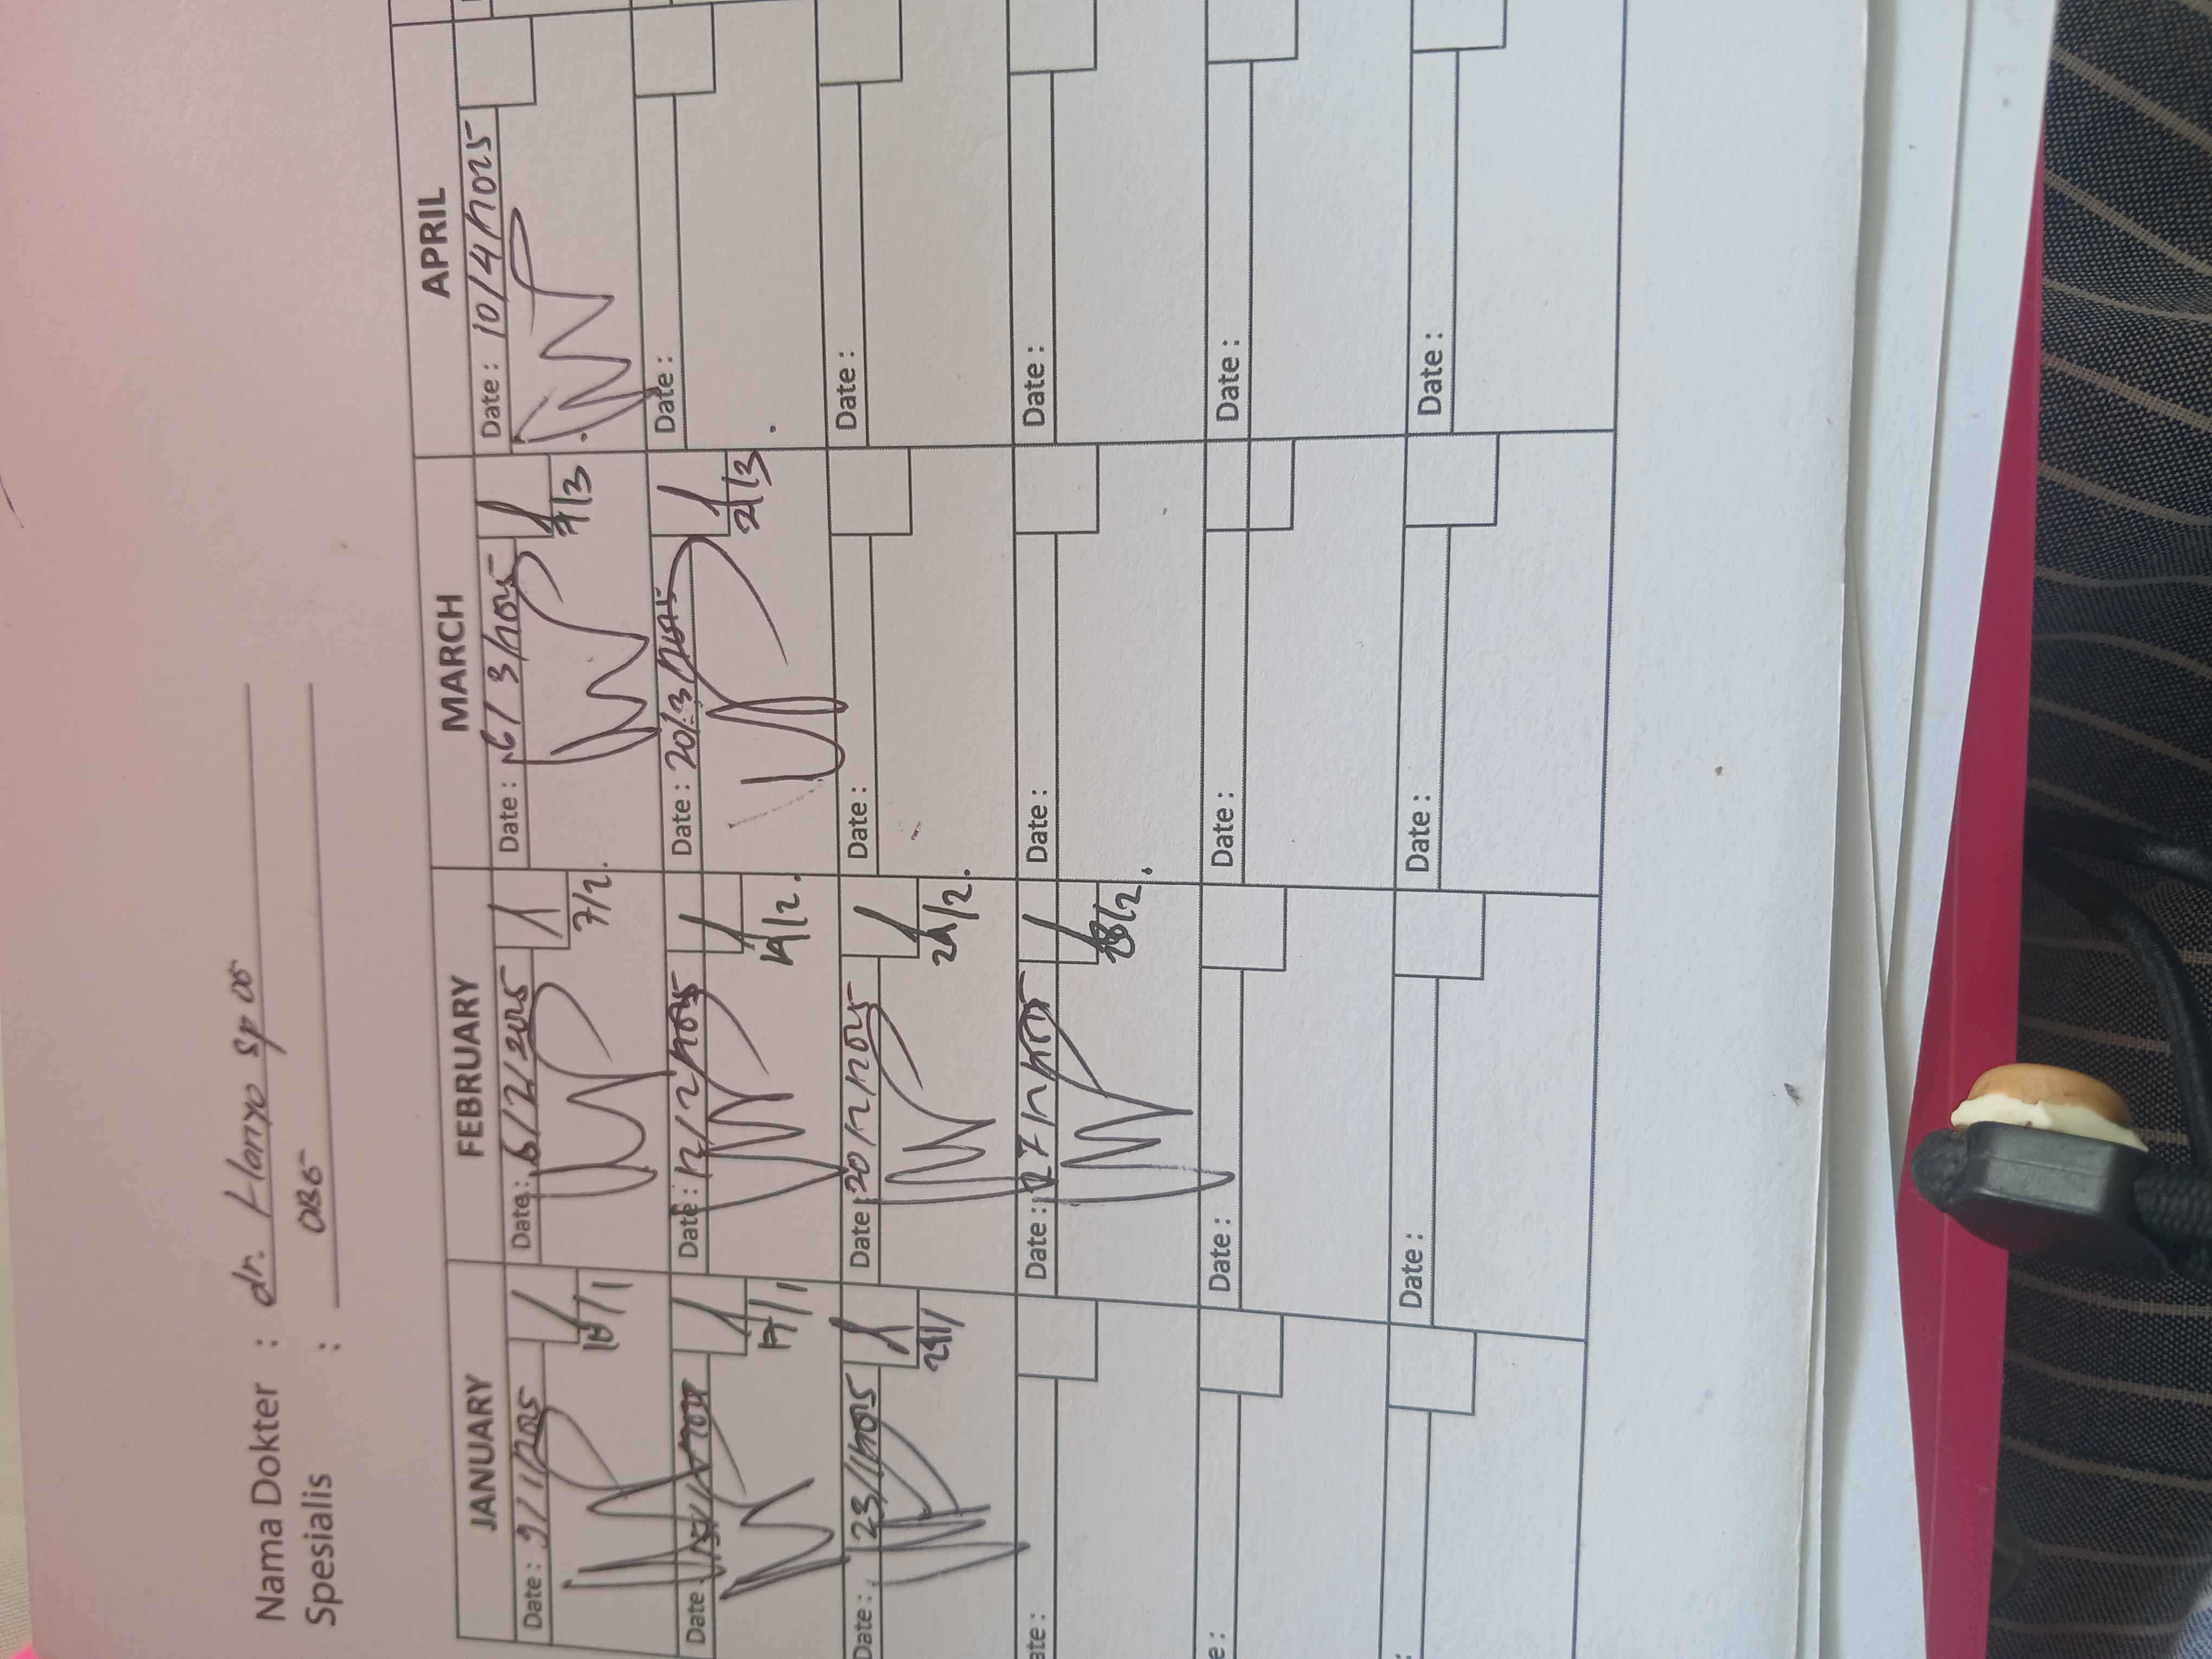 Nama Dokter : dr. Haryo Sp OG
Spesialis : OBG
JANUARY FEBRUARY MARCH APRIL
Date : 9/1/2025 10/1 Date : 6/2/2025 7/2. Date : 6/3/2025 7/3 Date : 10/4/2025
Date 17/1 Date : 12/2/2025 14/2. Date : 20/3/2025 21/3 Date :
Date : 23/1/2025 24/1 Date 20/2/2025 21/2. Date : Date :
ate : Date : 27/2/2025 28/2. Date : Date :
e : Date : Date : Date :
: Date : Date : Date :